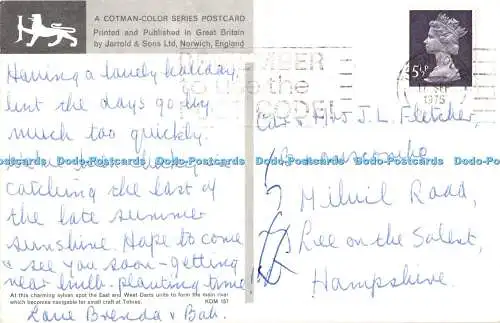 A COTMAN-COLOR SERIES POSTCARD
Printed and Published in Great Britain
by Jarrold & Sons Ltd, Norwich, England
Having a lovely holiday,
but the days go by
much too quickly.
catching the last of
the late summer
sunshine. Hope to come
& see you soon - getting
near bulb-planting time!
At this charming sylvan spot the East and West Darts unite to form the main river
which becomes navigable for small craft at Totnes. KDM 157
Love Brenda & Bob.
REMEMBER
to use the
POSTCODE
SEP
1975
5½P
& Mrs J. L. Fletcher,
Milvil Road,
Lee on the Solent,
Hampshire.
Dodo-Postcards Dodo-Postcards Dodo-Postcards Dodo-Postcards Dodo-Postcards Dodo-Postcards